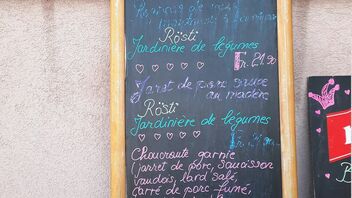 Rösti
Jardinière de légumes
Fr. 21.90
Jaret de porc sauce
au madère
Rösti
Jardinière de légumes
Choucroute garnie
jarret de porc, saucisson
vaudois, lard salé,
carré de porc fumé,